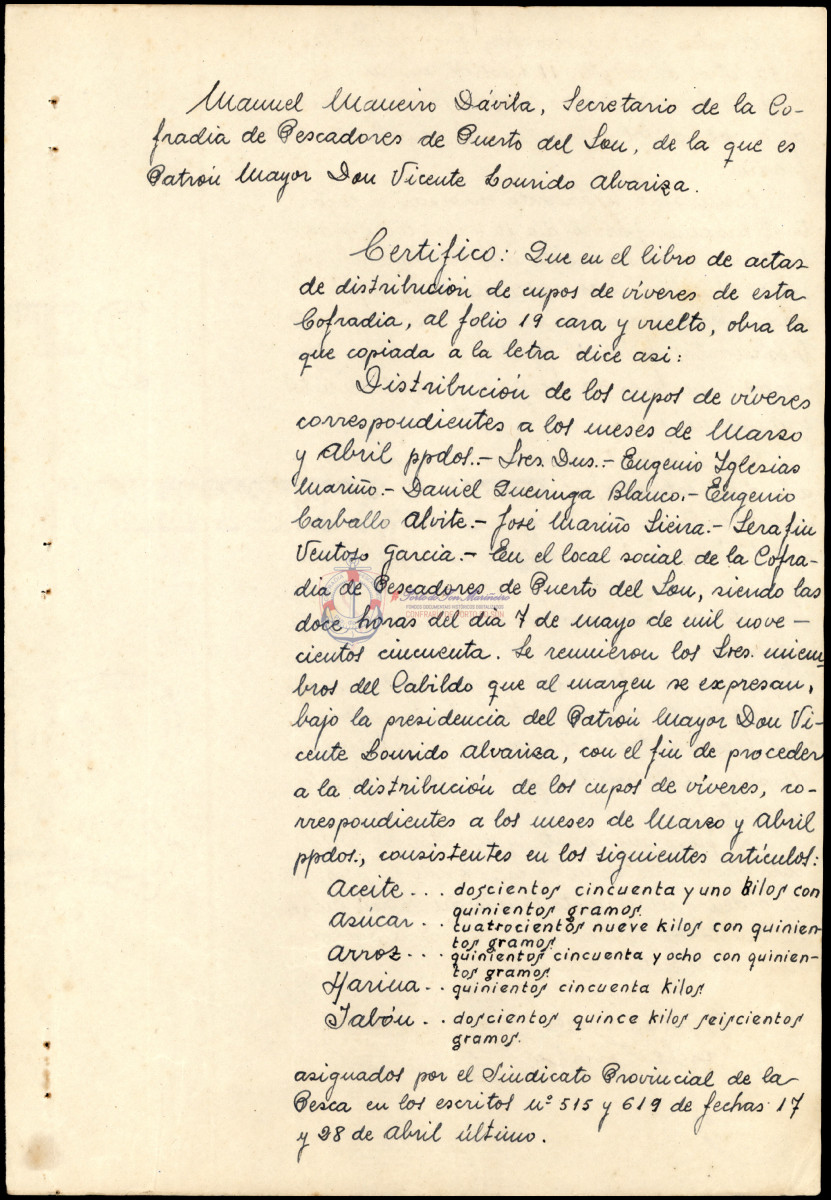 Manuel Maneiro Dávila, Secretario de la Co-
fradia de Pescadores de Puerto del Son, de la que es
Patrón Mayor Don Vicente Lourido Alvariza.
Certifico: Que en el libro de actas
de distribución de cupos de víveres de esta
Cofradia, al folio 19 cara y vuelto, obra la
que copiada a la letra dice asi:
Distribución de los cupos de víveres
correspondientes a los meses de Marzo
y Abril ppdos.- Sres. Dns.- Eugenio Iglesias
Mariño.- Daniel Queiruga Blanco.- Eugenio
Carballo Alvite.- José Mariño Sieira.- Serafin
Ventoso Garcia.- En el local social de la Cofra-
dia de Pescadores de Puerto del Son, siendo las
Porto do Son Mariñeiro
FONDOS DOCUMENTAIS HISTÓRICOS DIGITALIZADOS
CONFRARÍA DE PORTO DO SON
doce horas del día 7 de mayo de mil nove-
cientos cincuenta. Se reunieron los Sres. miem-
bros del Cabildo que al margen se expresan,
bajo la presidencia del Patrón Mayor Don Vi-
cente Lourido Alvariza, con el fin de proceder
a la distribución de los cupos de víveres, co-
rrespondientes a los meses de Marzo y Abril
ppdos., consistentes en los siguientes artículos:
Aceite... doscientos cincuenta y uno kilos con
quinientos gramos.
Azúcar.. cuatrocientos nueve kilos con quinien-
tos gramos.
Arroz... quinientos cincuenta y ocho con quinien-
tos gramos.
Harina.. quinientos cincuenta kilos
Jabón.. doscientos quince kilos seiscientos
gramos.
asignados por el Sindicato Provincial de la
Pesca en los escritos nº 515 y 619 de fechas 17
y 28 de Abril último.